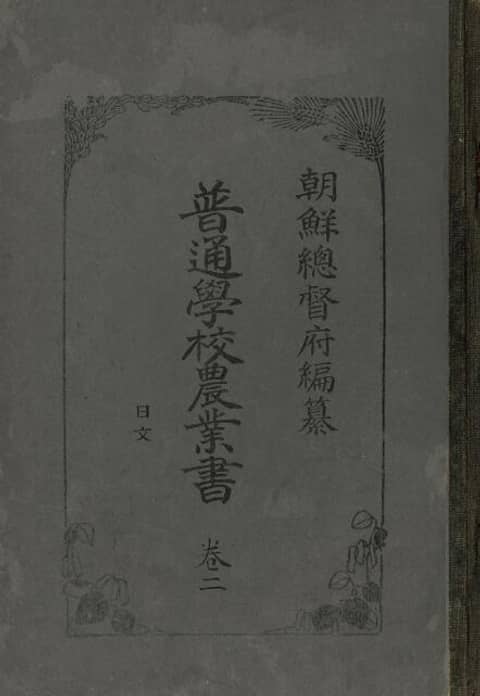 朝鮮總督府編纂
普通學校農業書 卷二
日文